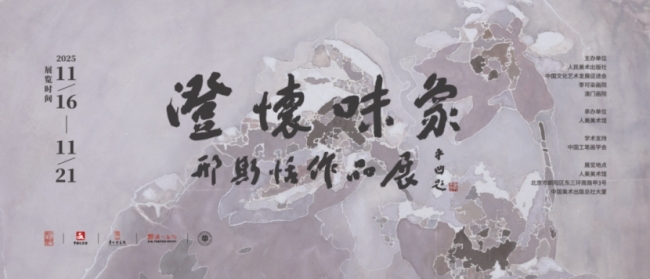 展览时间
2025
11/16
11/21
澄懷味象
邢斯恬作品展
主办单位
人民美术出版社
中国文化艺术发展促进会
李可染画院
澳门画院
承办单位
人美美术馆
学术支持
中国工笔画学会
展览地点
人美美术馆
北京市朝阳区东三环南路甲3号
中国美术出版总社大厦